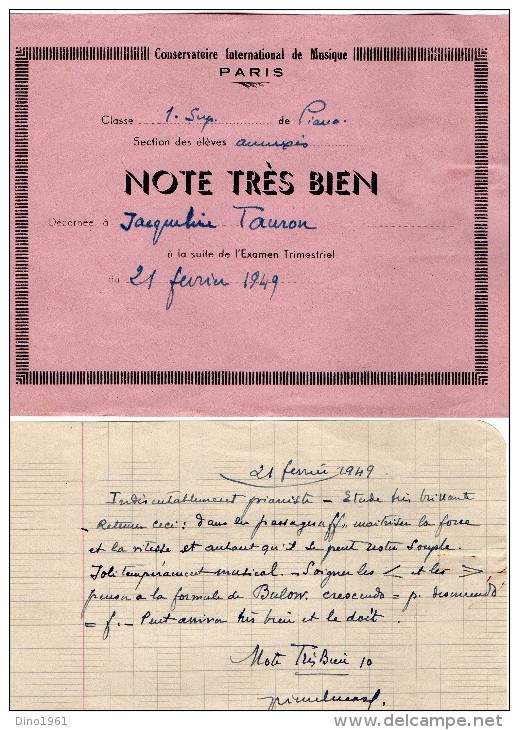 Conservatoire International de Musique
PARIS
Classe 1. Sup. de Piano.
Section des élèves annexés
NOTE TRÈS BIEN
Décernée à Jacqueline Tauron
à la suite de l'Examen Trimestriel
du 21 février 1949
21 février 1949
Indiscutablement pianiste - Etude très brillante
Retenir ceci : dans les passages ff, maitriser la force
et la vitesse et autant qu'il se peut rester souple.
Joli tempérament musical. - Soigner les < et les >
penser à la formule de Bulow. crescendo = p. descrescendo
= f. - Peut arriver très bien et le doit.
Note Très Bien 10
Dino1961
delcampe.net